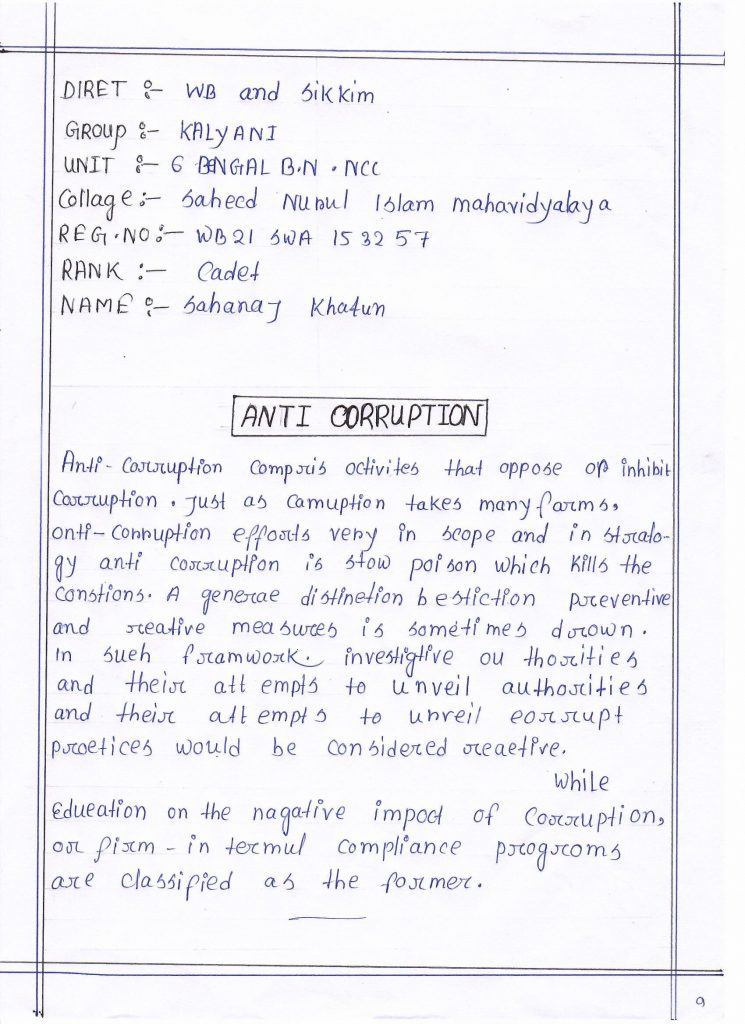 DIRET :- WB and Sikkim
GROUP :- KALYANI
UNIT :- 6 BENGAL B.N . NCC
Collage :- Saheed Nurul Islam mahavidyalaya
REG.NO :- WB21 SWA 153257
RANK :- Cadet
NAME :- Sahanaj Khatun
ANTI CORRUPTION
Anti-Corruption Compris octivites that oppose or inhibit
Corruption . Just as Camuption takes many farms,
onti-Conruption efforts very in scope and in strato-
gy anti corruption is stow poison which kills the
Constions. A generae distinetion bestiction preventive
and reative measures is sometimes drown.
In sueh framwork. investigtive outhorities
and their attempts to unveil authorities
and their attempts to unveil eorrupt
proetices would be considered reaetive.
While
Edueation on the nagative impoct of Corruption,
or firm - in termul compliance progroms
are classified as the former.
9